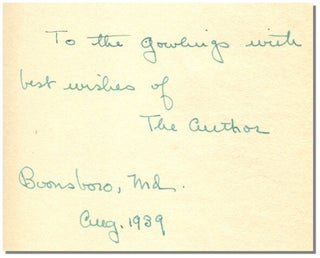 To the Gowlings with
best wishes of
The Author
Boonsboro, Md.
Aug. 1939